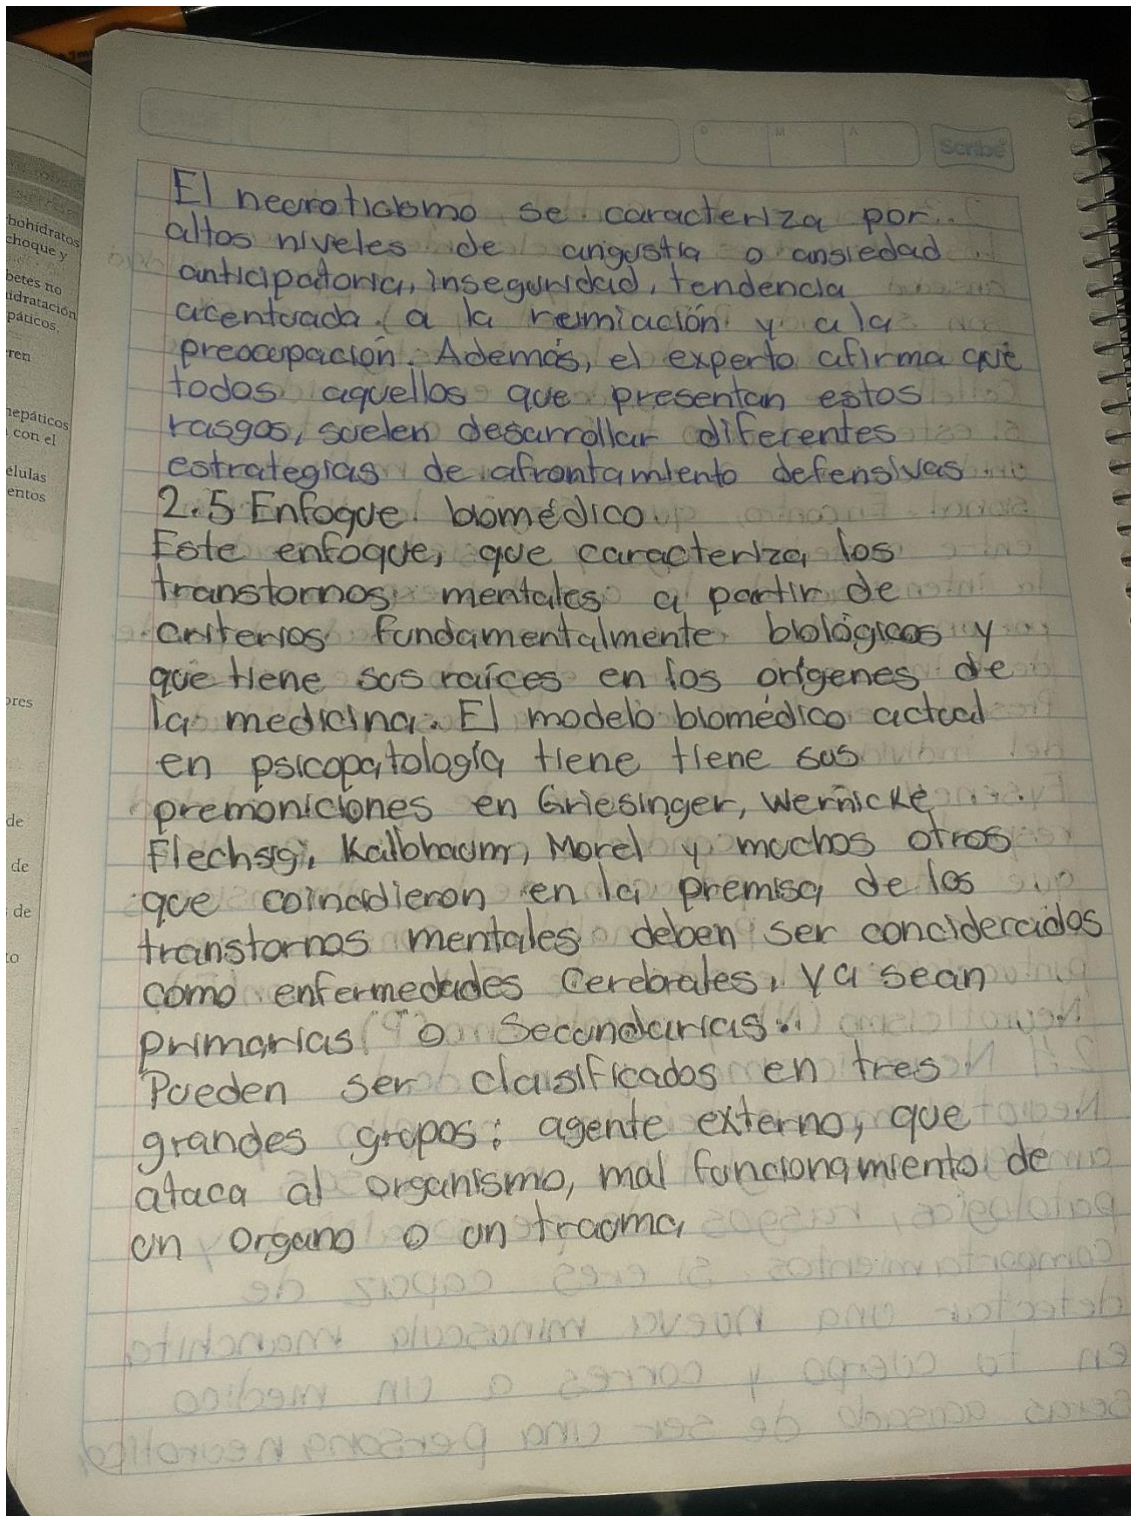 Scribe
D M A
El neuroticismo se caracteriza por
altos niveles de angustia o ansiedad
anticipatoria, inseguridad, tendencia
acentuada a la rumiación y a la
preocupación. Además, el experto afirma que
todos aquellos que presentan estos
rasgos, suelen desarrollar diferentes
estrategias de afrontamiento defensivas
2.5 Enfoque biomédico
Este enfoque, que caracteriza los
transtornos mentales a partir de
criterios fundamentalmente biológicos y
que tiene sus raíces en los orígenes de
la medicina. El modelo biomédico actual
en psicopatología tiene tiene sus
premoniciones en Griesinger, Wernicke
Flechsig, Kalbhaum, Morel y muchos otros
que coincidieron en la premisa de los
transtornos mentales deben ser conciderados
como enfermedades Cerebrales, ya sean
primarias o Secundarias.
Pueden ser clasificados en tres
grandes grupos: agente externo, que
ataca al organismo, mal funcionamiento de
un organo o un trauma
bohidratos
choque y
betes no
idratación
páticos,
ren
hepáticos
con el
élulas
entos
ores
de
de
de